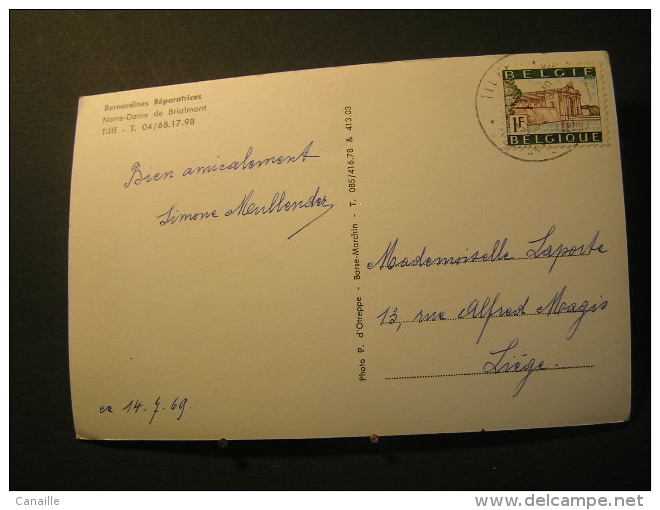 Bernardines Réparatrices
Notre-Dame de Brialmont
Tilff - T. 04/68.17.98
Bien amicalement
Simone Meullender
ce 14.7.69.
Photo P. d'Otreppe - Barse-Marchin - T. 085/416.78 & 413.03
BELGIE
1F
BELGIQUE
Mademoiselle Laporte
13, rue Alfred Magis
Liége.
Canaille
www.delcampe.net